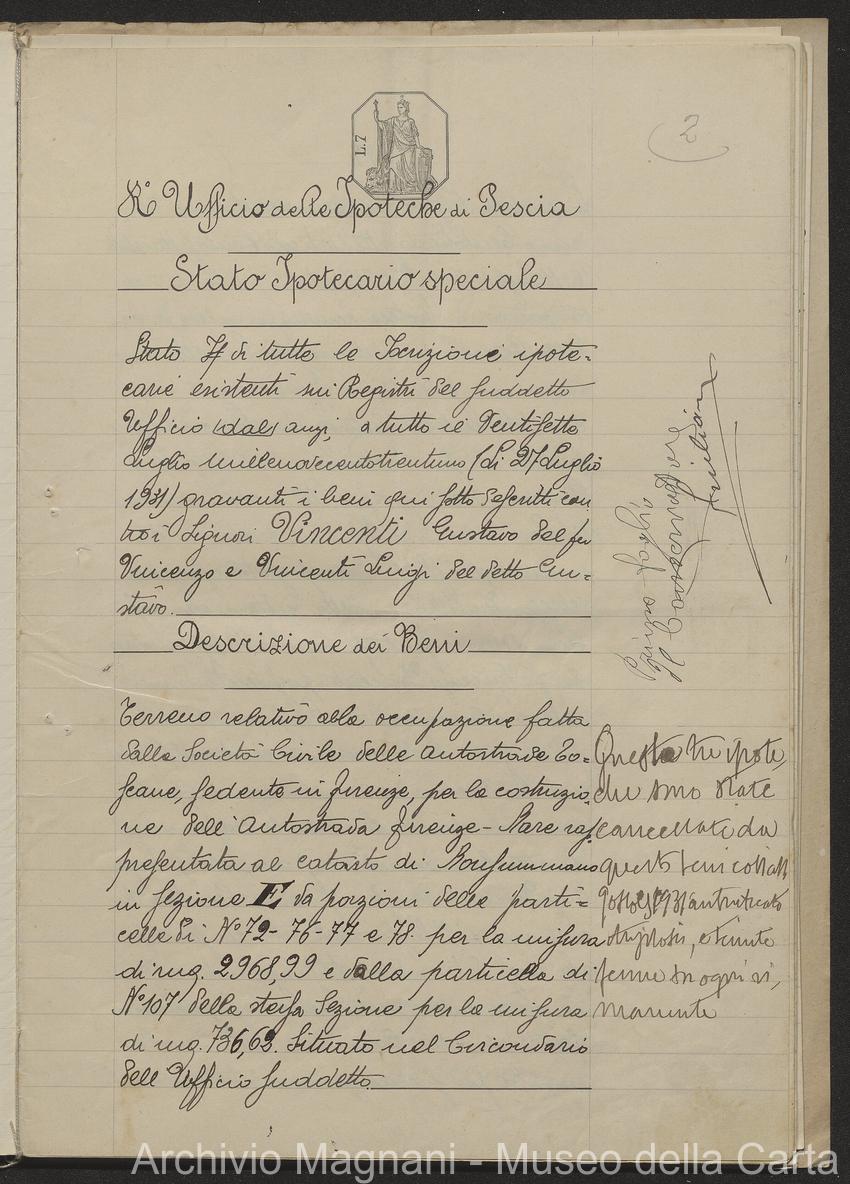 L.7
2
R° Ufficio delle Ipoteche di Pescia
Stato Ipotecario speciale
Stato # di tutte le Iscrizioni ipote=
carie esistenti sui Registri del suddetto
Ufficio (dal) anzi, a tutto il Ventisette
Luglio millenovecentotrentuno (li 27 Luglio
1931) gravanti i beni qui sotto descritti con
tro i Signori Vincenti Gustavo del fu
Vincenzo e Vincenti Luigi del detto Gu=
stavo.
Descrizione dei Beni
Terreno relativo alla occupazione fatta
dalla Società Civile delle Autostrade To=
scane, sedente in Firenze, per la costruzio
ne dell'Autostrada Firenze-Mare rap
presentata al catasto di Monsummano
in sezione E da porzioni delle parti=
celle di N° 72-76-77 e 78. per la misura
di mq. 2968,99 e dalla particella di
N° 107 della stessa Sezione per la misura
di mq. 736,62. Situato nel Circondario
dell'Ufficio suddetto.
Queste tre ipote,
che sono state
cancellate da
questi beni
manente
Archivio Magnani - Museo della Carta